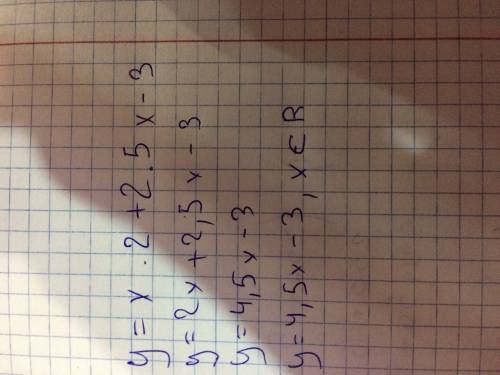 y = x · 2 + 2.5 x - 3
y = 2x + 2,5 x - 3
y = 4,5x - 3
y = 4,5x - 3, x ∈ R